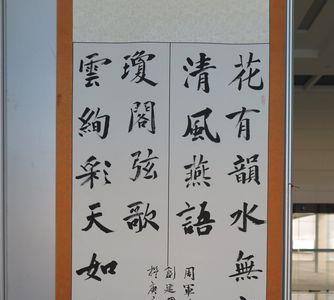 花有韻水無
清風燕語
瓊閣弦歌
雲絢彩天如
周軍